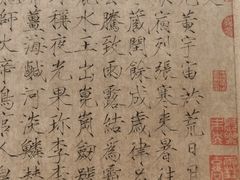 黃宇宙洪荒日
宿列張寒來暑往
藏閏餘成歲律呂
騰致雨露結為霜
水玉出崑岡劍號
稱夜光果珍李柰
薑海鹹河淡鱗潛
師火帝鳥官人